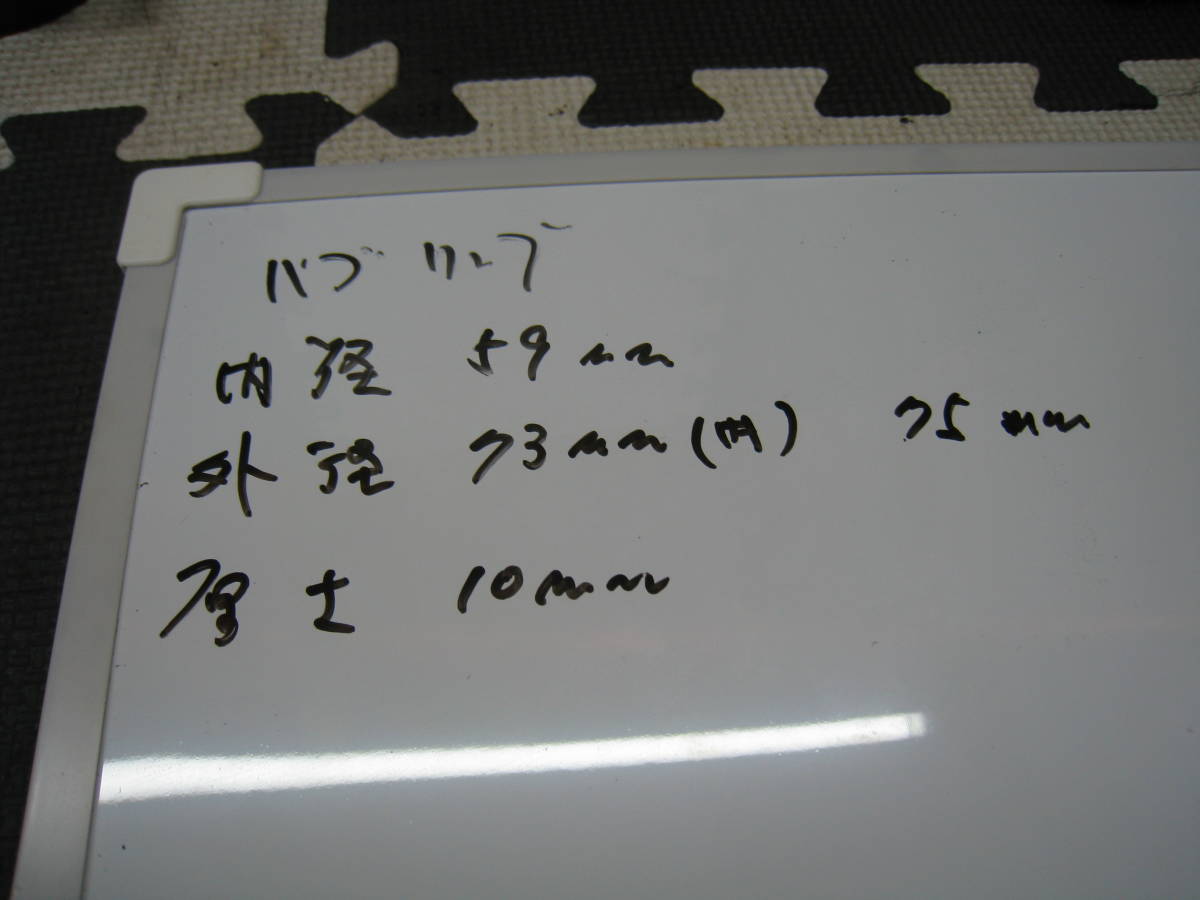 ハブリング
内径 59mm
外径 73mm(内) 75mm
厚さ 10mm